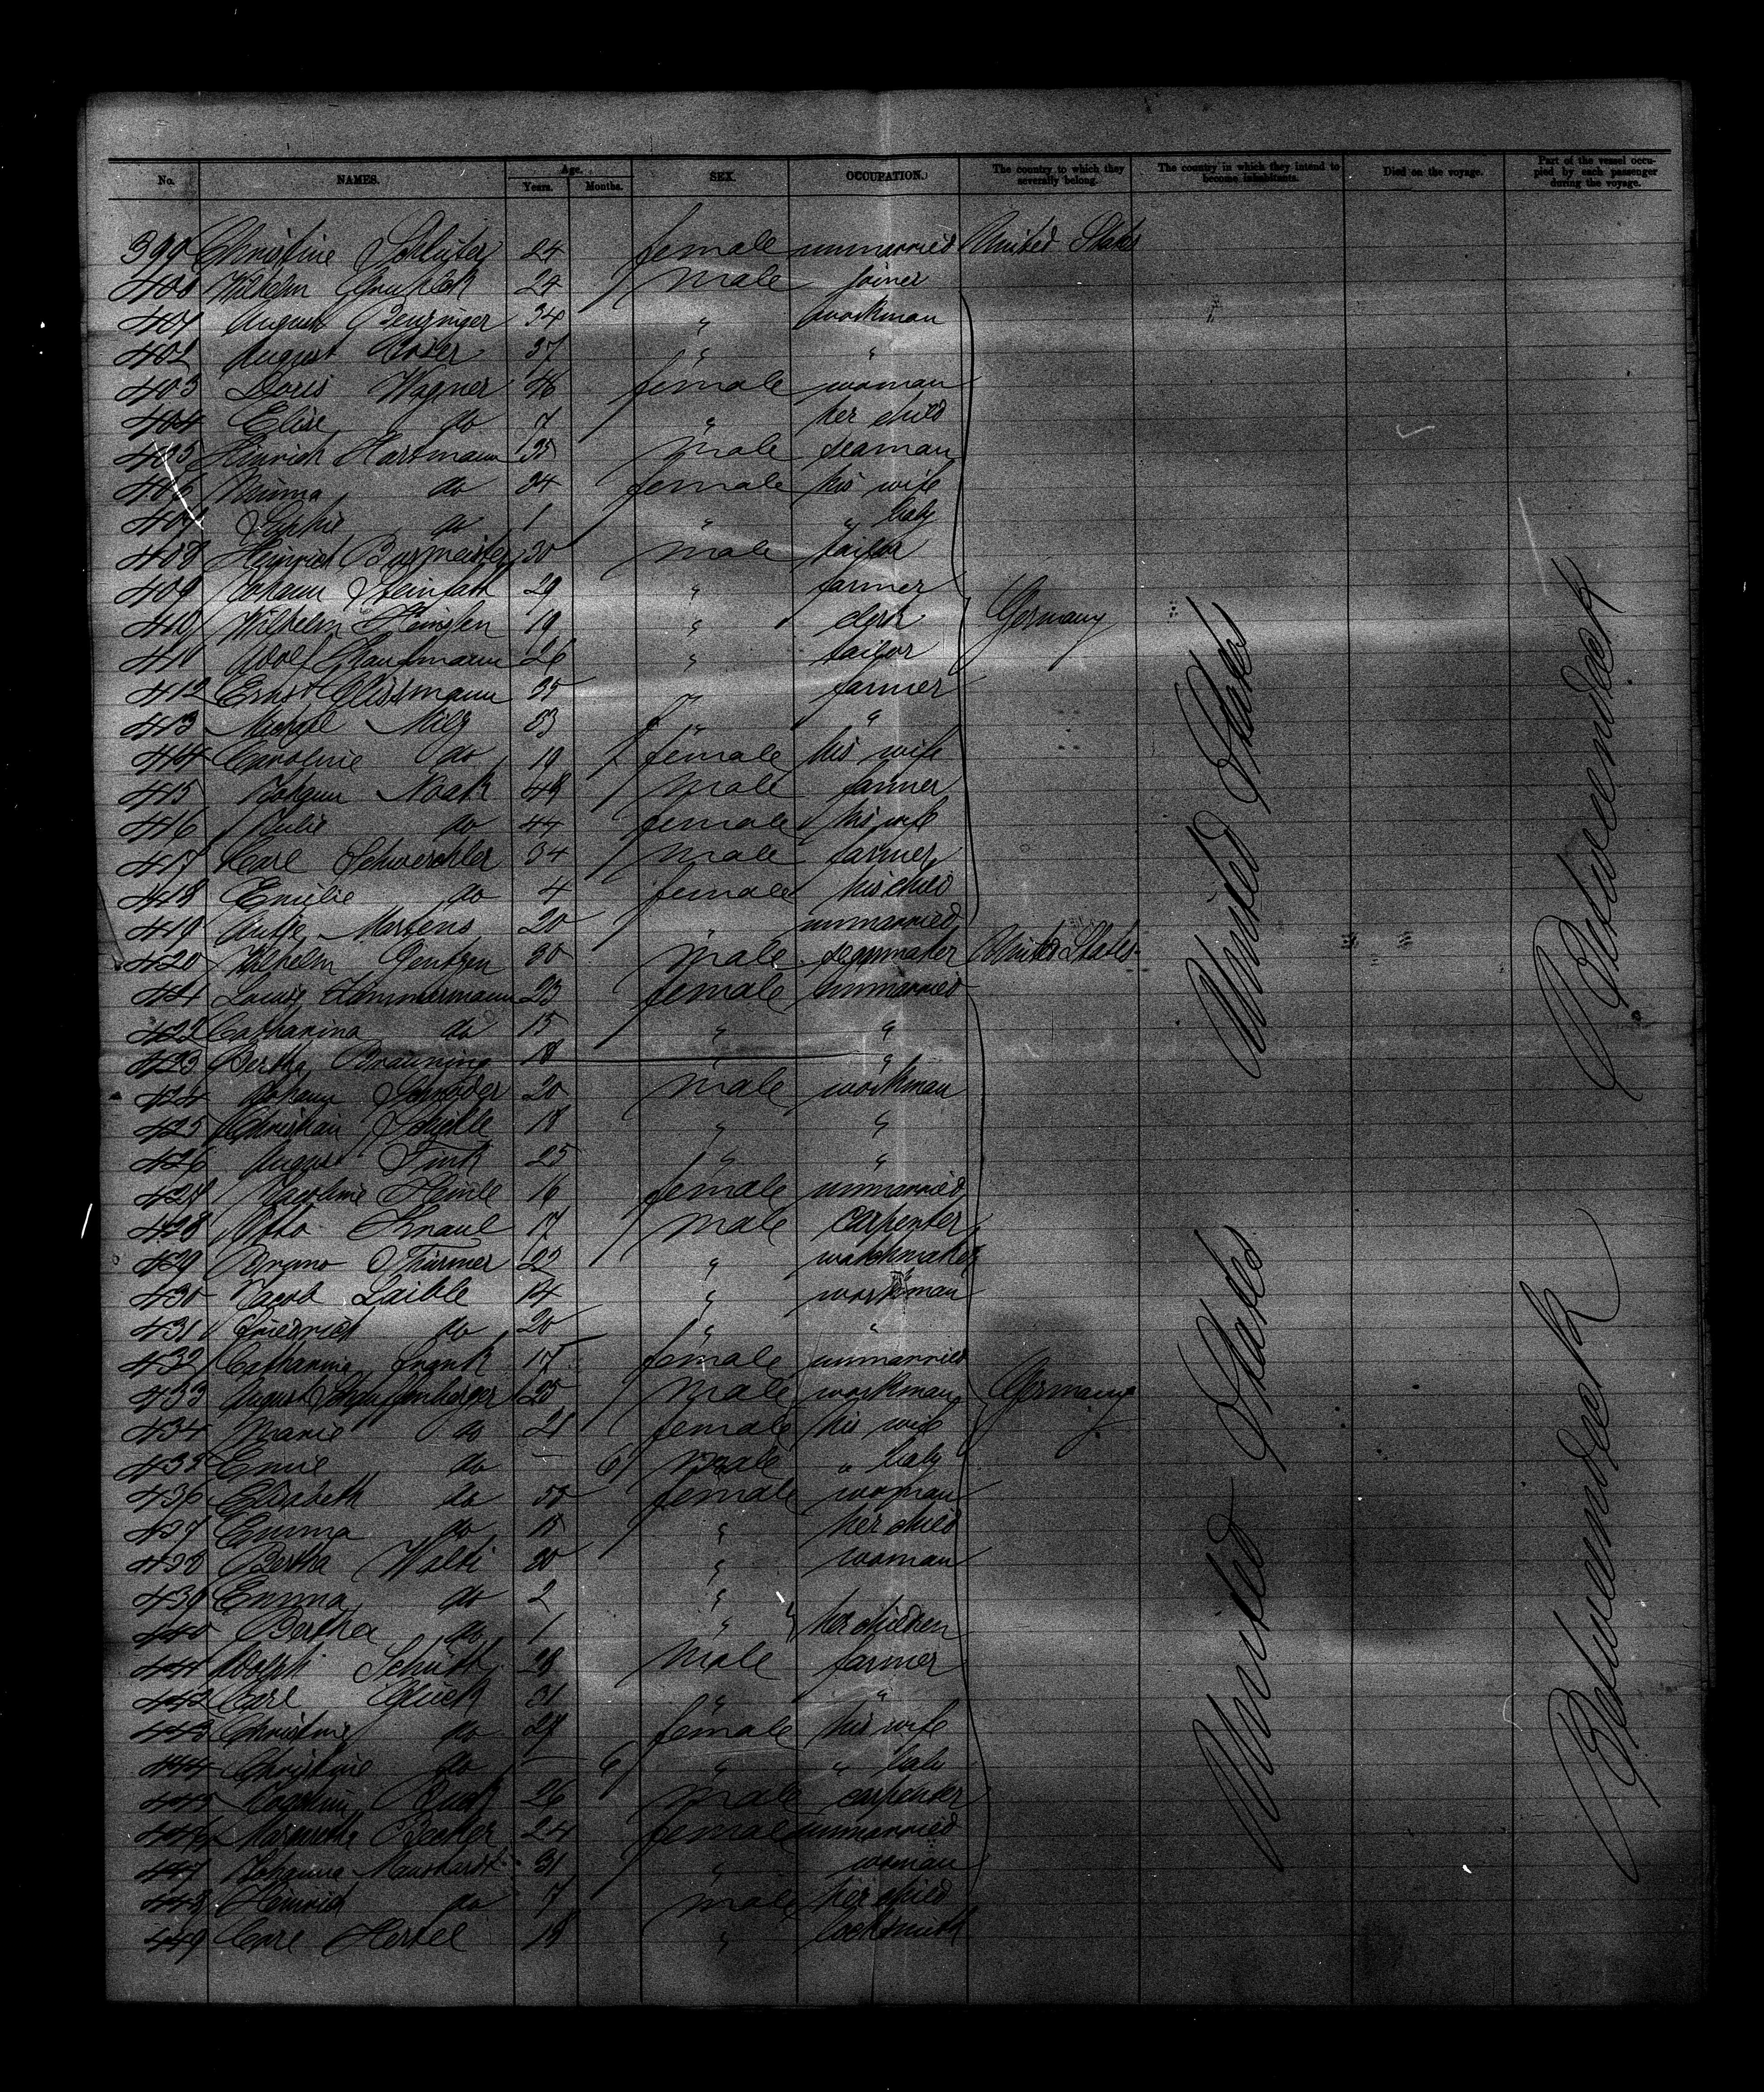 No. NAMES. Age. Years. Months. SEX. OCCUPATION. The country to which they severally belong. The country in which they intend to become inhabitants. Died on the voyage. Part of the vessel occupied by each passenger during the voyage.
399 Christine Schlüter 24 female unmarried United States
400 Wilhelm 24 male joiner
401 August 34 " workman
402 August 37 " "
403 Doris Wagner female woman
404 Elise do 7 " her child
405 Heinrich Hartmann 35 male seaman
406 Minna do 24 female his wife
407 Sophie do 1 " " baby
408 Heinrich Burmeister 30 male tailor
409 Johann Steinfatt 29 " farmer
410 Wilhelm 19 " clerk Germany
411 Adolf 26 " tailor
412 Ernst Clissmann 25 " farmer
413 Michael Milz " "
414 Caroline do 19 female his wife
415 Johann Noak 48 male farmer
416 Julie do 44 female his wife
417 Carl 34 male farmer
418 Emilie do 4 female his child
419 Antje Martens 20 " unmarried
420 Wilhelm 30 male United States
421 Louise 23 female unmarried
422 Catharina do 15 " "
423 Bertha Bräuning 18 " "
424 Johann Schröder 20 male workman
425 Christian 18 " "
426 August Fink 25 " "
427 16 female unmarried
428 Otto Knaul 17 male carpenter
429 Bruno Thürmer 22 " watchmaker
430 Jacob Laible 14 " workman
431 Friedrich do 20 " "
432 Catharina Frank 17 female unmarried
433 August 25 male workman Germany
434 Marie do 21 female his wife
435 Emil do — 6 male " baby
436 Elisabeth do female woman
437 Emma do 15 " her child
438 Bertha Walti 30 " woman
439 Emma do 2 "
440 Bertha do 1 " her children
441 Adolph Schütt 28 male farmer
442 Carl Glück 31 " "
443 Christine do 28 female his wife
444 Christine do — 6 " " baby
445 26 male carpenter
446 Margarethe Becker 24 female unmarried
447 Johanna 31 " woman
448 Heinrich do 7 male her child
449 Carl Hertel 18 " locksmith
United States
United States
Betweendeck
Betweendeck